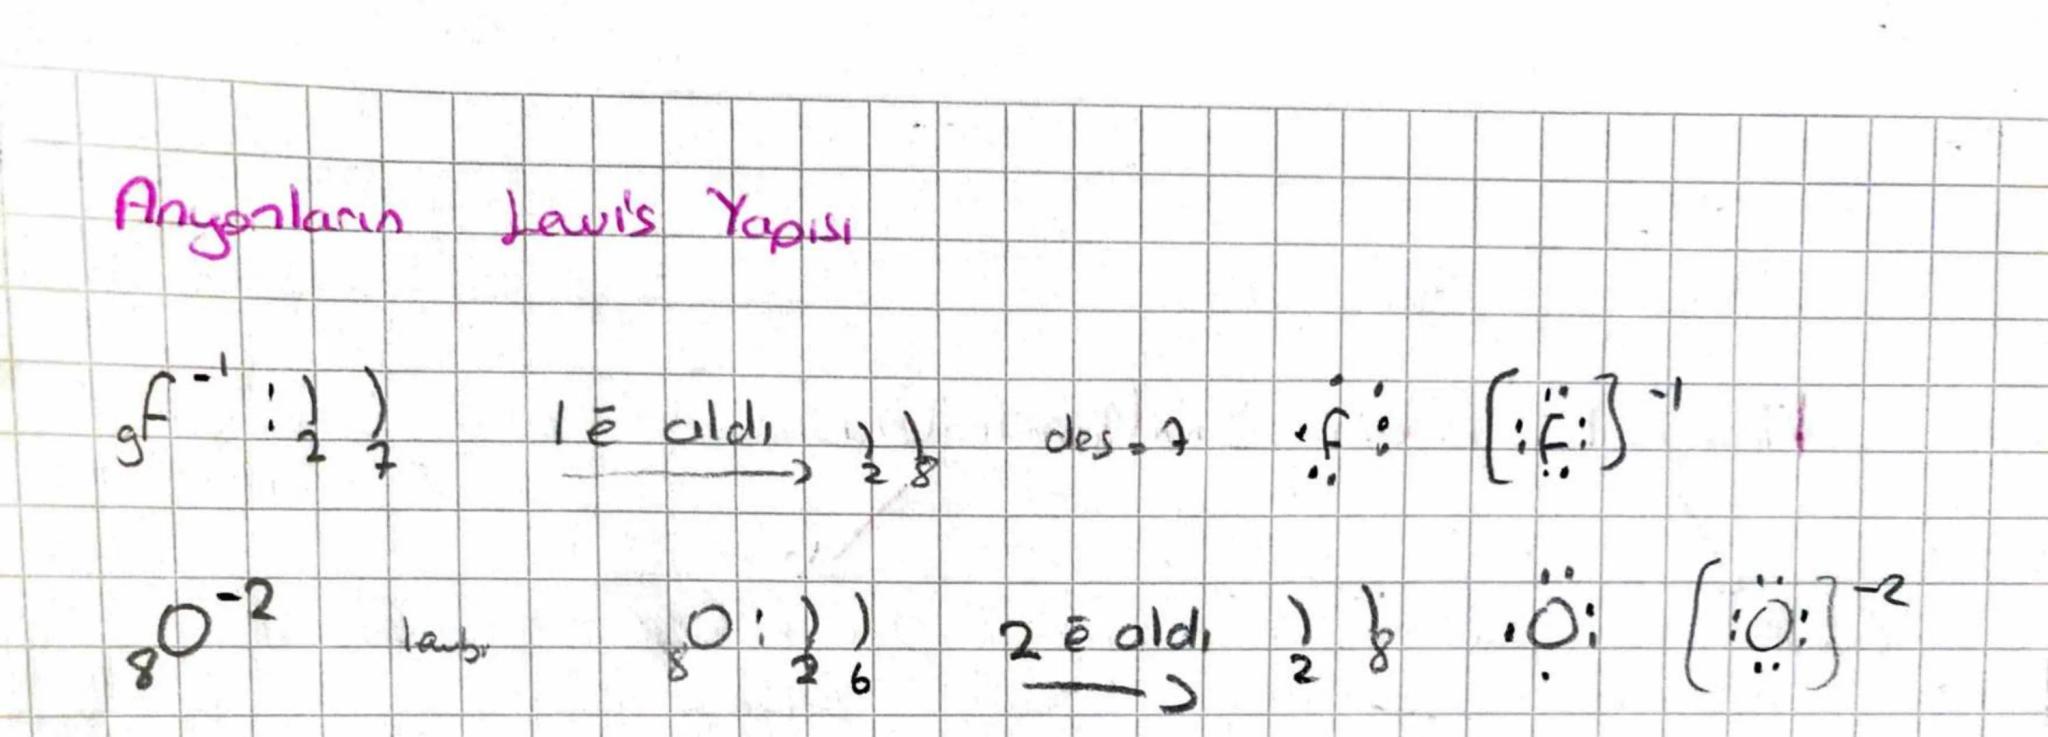 Anyonların Lewis Yapısı
₉F⁻¹ : )₂ )₇ 1 ē aldı → )₂ )₈ des = 7 ·Ḟ̤: [:F̤̈:]⁻¹
₈O⁻² ₈O : )₂ )₆ 2 ē aldı → )₂ )₈ ·Ọ̈: [:Ö̤:]⁻²